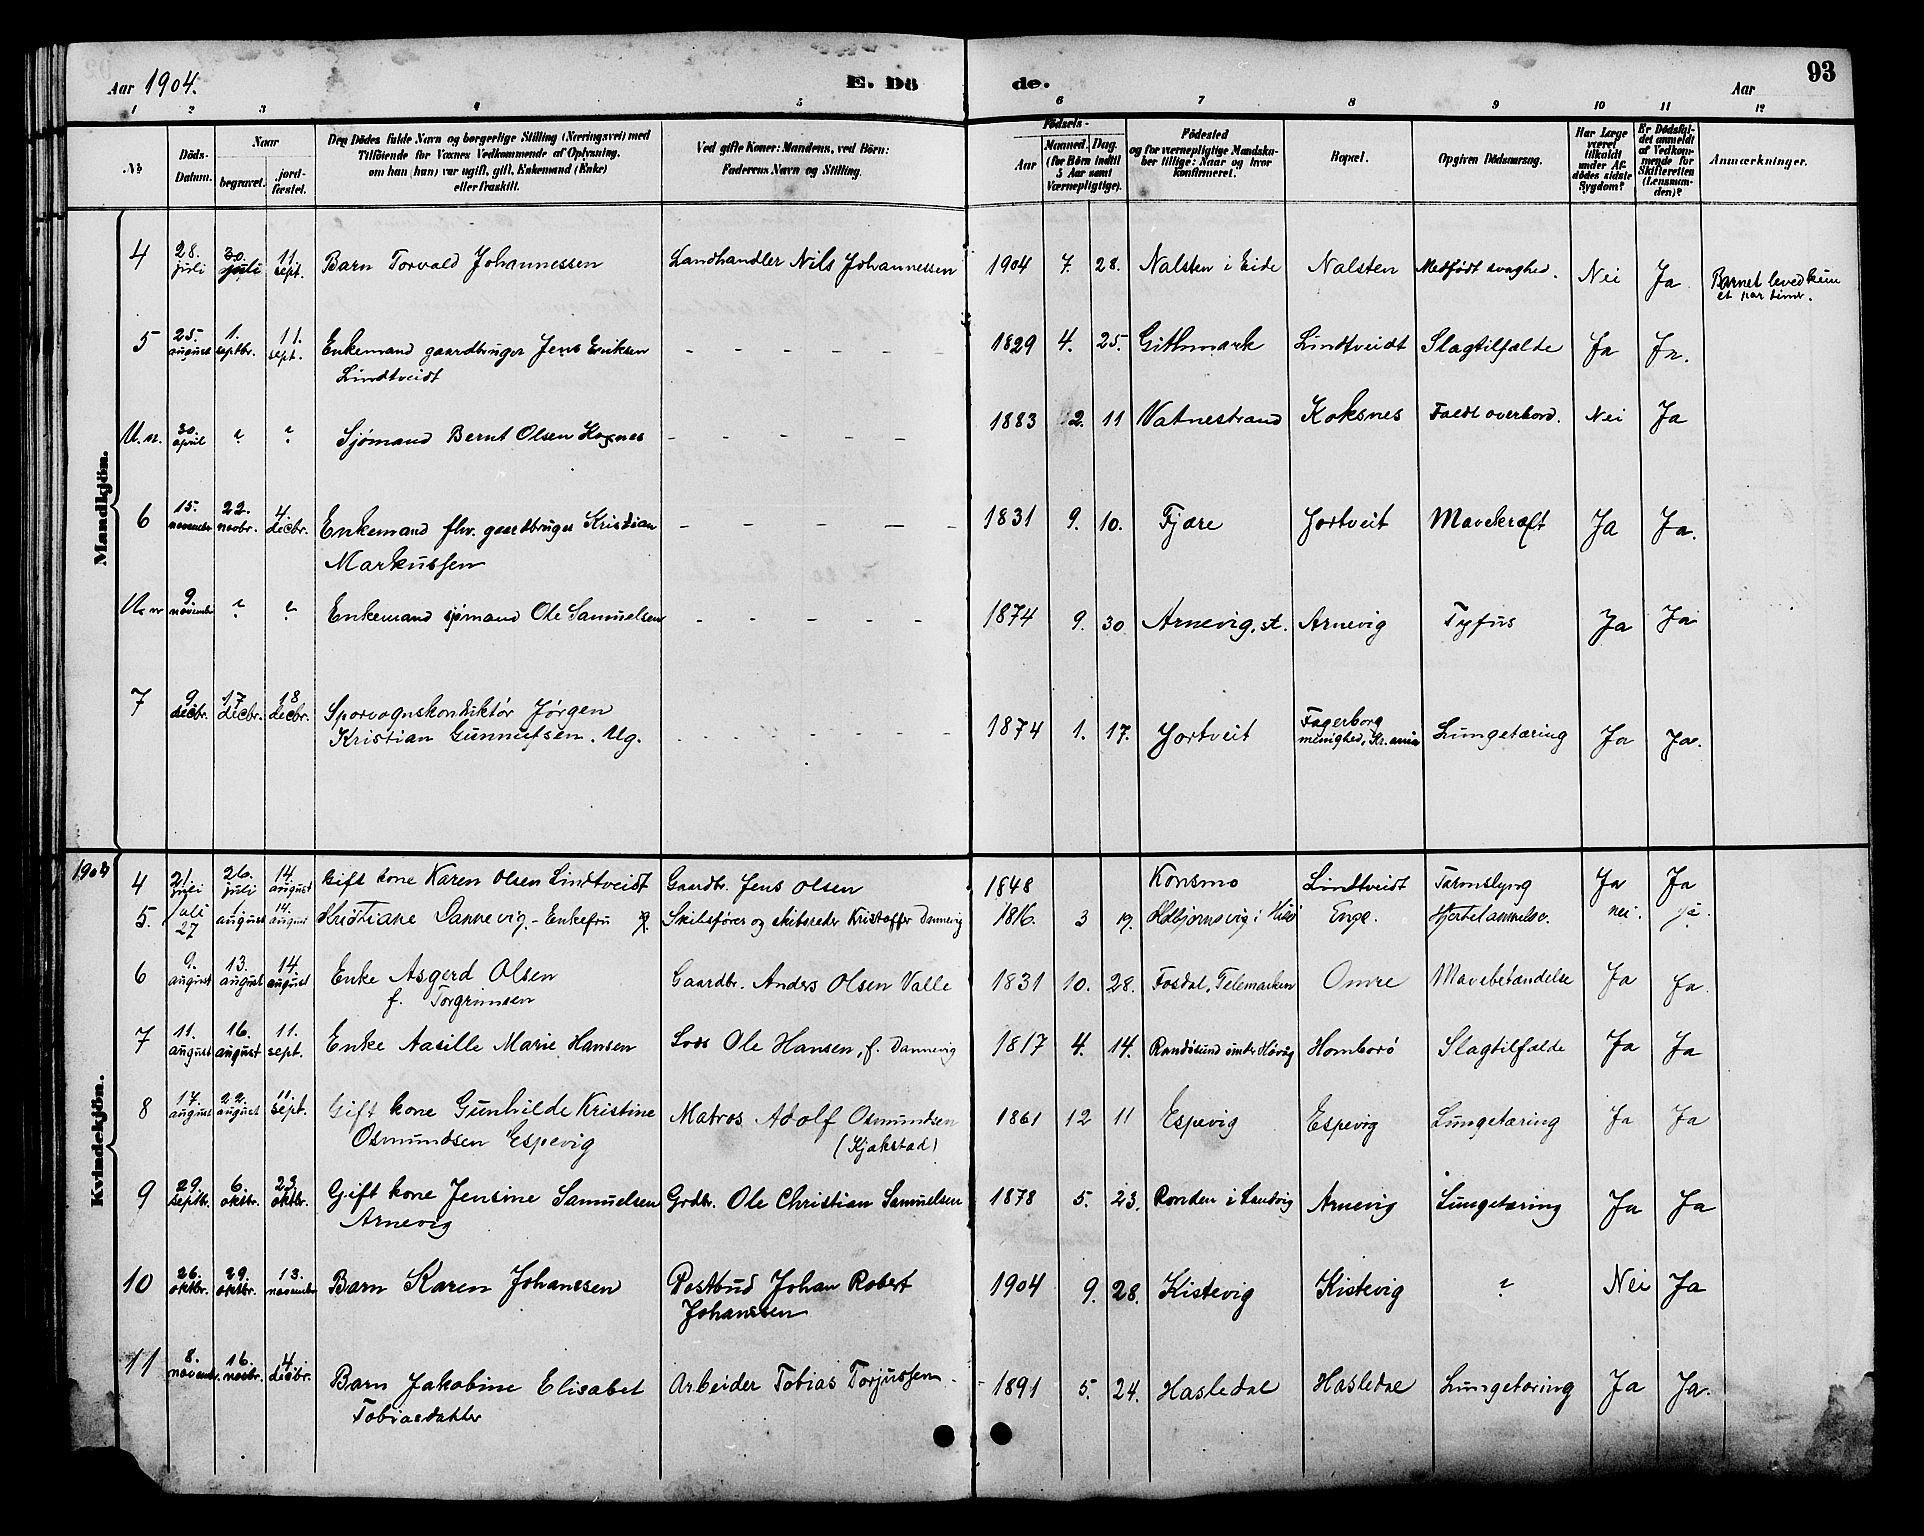 Aar 1904.
E. Dö
de.
Aar
93
1 2 3 4 5 6 7 8 9 10 11 12
No
Döds-
Datum.
Naar
begravet.
jord-
fæstet.
Den Dödes fulde Navn og borgerlige Stilling (Næringsvei) med
Tilföiende for Voxnes Vedkommende af Oplysning,
om han (hun) var ugift, gift, Enkemand (Enke)
eller fraskilt.
Ved gifte Koner: Mandens, ved Börn:
Faderens Navn og Stilling.
Födsels-
Aar
Maaned.
Dag.
(for Börn indtil
5 Aar samt
Værnepligtige).
Födested
og for værnepligtige Mandska-
ber tillige: Naar og hvor
konfirmeret.
Bopæl.
Opgiven Dödsaarsag.
Har Læge
været
tilkaldt
under Af-
dödes sidste
Sygdom?
Er Dödsfal-
det anmeldt
af Vedkom-
mende for
Skifteretten
(Lensman-
den)?
Anmærkninger.
Mandkjön.
4 28. juli 30. juli 11. sept. Barn Torvald Johannessen Landhandler Nils Johannessen 1904 7. 28. Nalsten i Eide Nalsten Medfödt svaghed. Nei Ja Barnet leved kun
et par timer.
5 25. august 1. septbr. 11. sept. Enkemand gaardbruger Jens Eriksen - - - - - - 1829 4. 25. Lindtveidt Slagtilfælde Ja Ja.
Lindtveidt
U.n. 30. april ? ? Sjømand Bernt Olsen Koxnes - - - - - 1883 2. 11 Vatnestrand Koksnes Faldt overbord. Nei Ja
6 15. november 22. novbr. 4. decbr. Enkemand fhv. gaardbruger Kristian - - - - - 1831 9. 10. Fjære Jortveit Mavekræft Ja Ja.
Markussen
U.n 9. november ? ? Enkemand sjømand Ole Samuelsen - - - - - 1874 9. 30 Arnevig, st. Arnevig Tyfus Ja Ja
7 9. decbr. 17. decbr. 18 decbr. Sporvognskonduktør Jørgen
Kristian Gunnufsen. Ug. - - - - - - 1874 1. 17. Jortveit Fagerborg
menighed, Kr.ania Lungetæring Ja Ja.
Kvindekjön.
4 21. juli 26. juli 14. august Gift kone Karen Olsen Lindtveidt Gaardbr. Jens Olsen 1848 Konsmo Lindtveidt Tarmslyng Ja Ja
5. Juli 27 1 august 14. august Kristiane Dannevig - Enkefru Skibsfører og skibsreder Kristoffer Dannevig 1816. 3 19. Enge. nei. ja.
6 9. august 13. august 14. august Enke Asgerd Olsen Gaardbr. Anders Olsen Valle 1831 10. 28. Fosdal, Telemarken Omre Mavebetændelse Ja Ja
f. Torgrimsen
7 11. august 16. august 11. sept. Enke Aasille Marie Hansen Lods Ole Hansen, f. Dannevig 1817 4. 14. Randøsund under Høvåg Homborø Slagtilfælde Ja Ja
8 17. august 22. august 11. sept. Gift kone Gunhilde Kristine Matros Adolf Osmundsen 1861 12 11 Espevig Espevig Lungetæring Ja Ja
Osmundsen Espevig (Kjakstad)
9 29. septbr. 6. oktbr. 23. oktbr. Gift kone Jensine Samuelsen Grdbr. Ole Christian Samuelsen 1878 5. 23. Ronden i Landvig Arnevig Lungetæring Ja Ja
Arnevig
10 26. oktbr. 29. oktbr. 13. november Barn Karen Johanssen Postbud Johan Robert 1904 9. 28. Kistevig Kistevig ? Nei Ja
Johanssen
11 8. novembr. 16. novbr. 4. decbr. Barn Jakobine Elisabet Arbeider Tobias Torjussen 1891 5. 24. Hasledal Hasledal Lungetæring Ja Ja.
Tobiasdatter